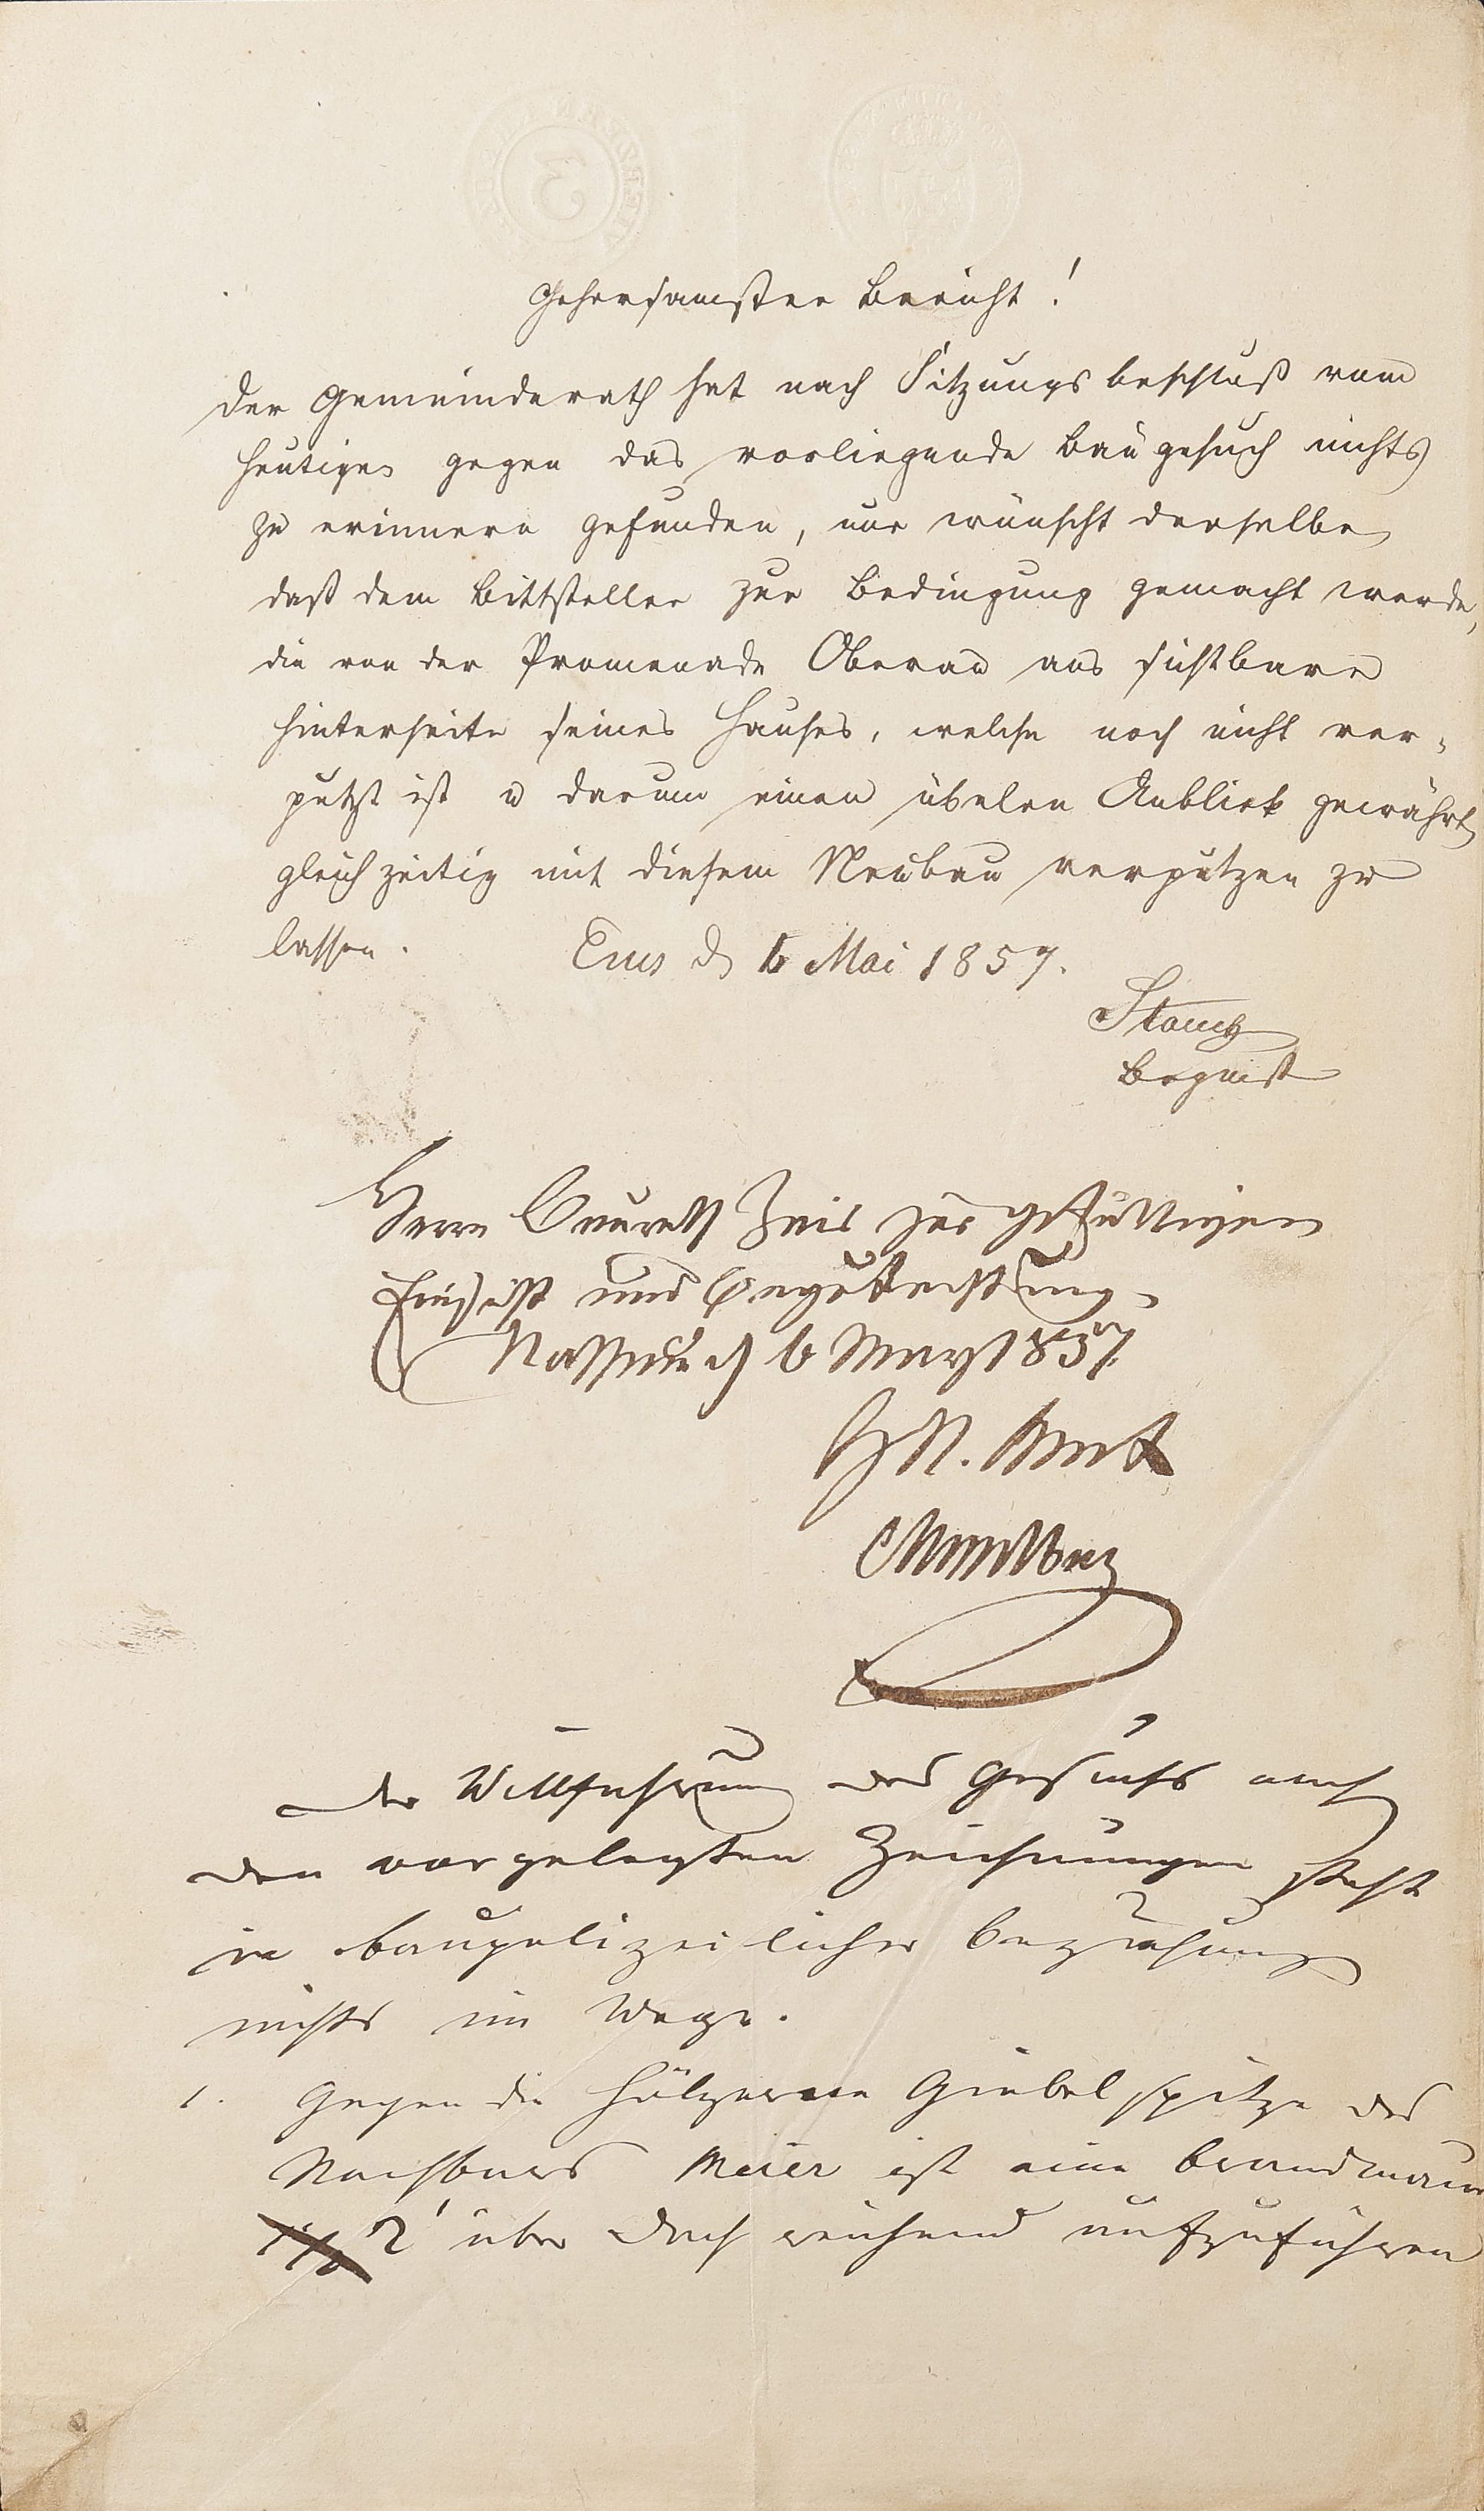 Gehorsamster Bericht!
Der Gemeinderath hat nach Sitzungsbeschluß vom
heutigen gegen das vorliegende Baugesuch nichts
zu erinnern gefunden, nur wünscht derselbe
daß dem Bittsteller zur Bedingung gemacht werde,
die von der Promenade Oberau aus sichtbare
Hinterseite seines Hauses, welche noch nicht ver-
putzt ist u darum einen übelen Anblick gewährt
gleichzeitig mit diesem Neubau verputzen zu
lassen. Ems d 6 Mai 1857.
Herrn Baurath Zais zur gefälligen
Einsicht und Begutachtung.
Nassau d 6 May 1857.
H. N. Amt
Der Willfahrung des Gesuchs nach
den vorgelegten Zeichnungen steht
in baupolizeilicher Beziehung
nichts im Wege.
1. Gegen die hölzerne Giebelspitze des
Nachbars Meier ist eine Brandmauer
2' über Dach reichend aufzuführen